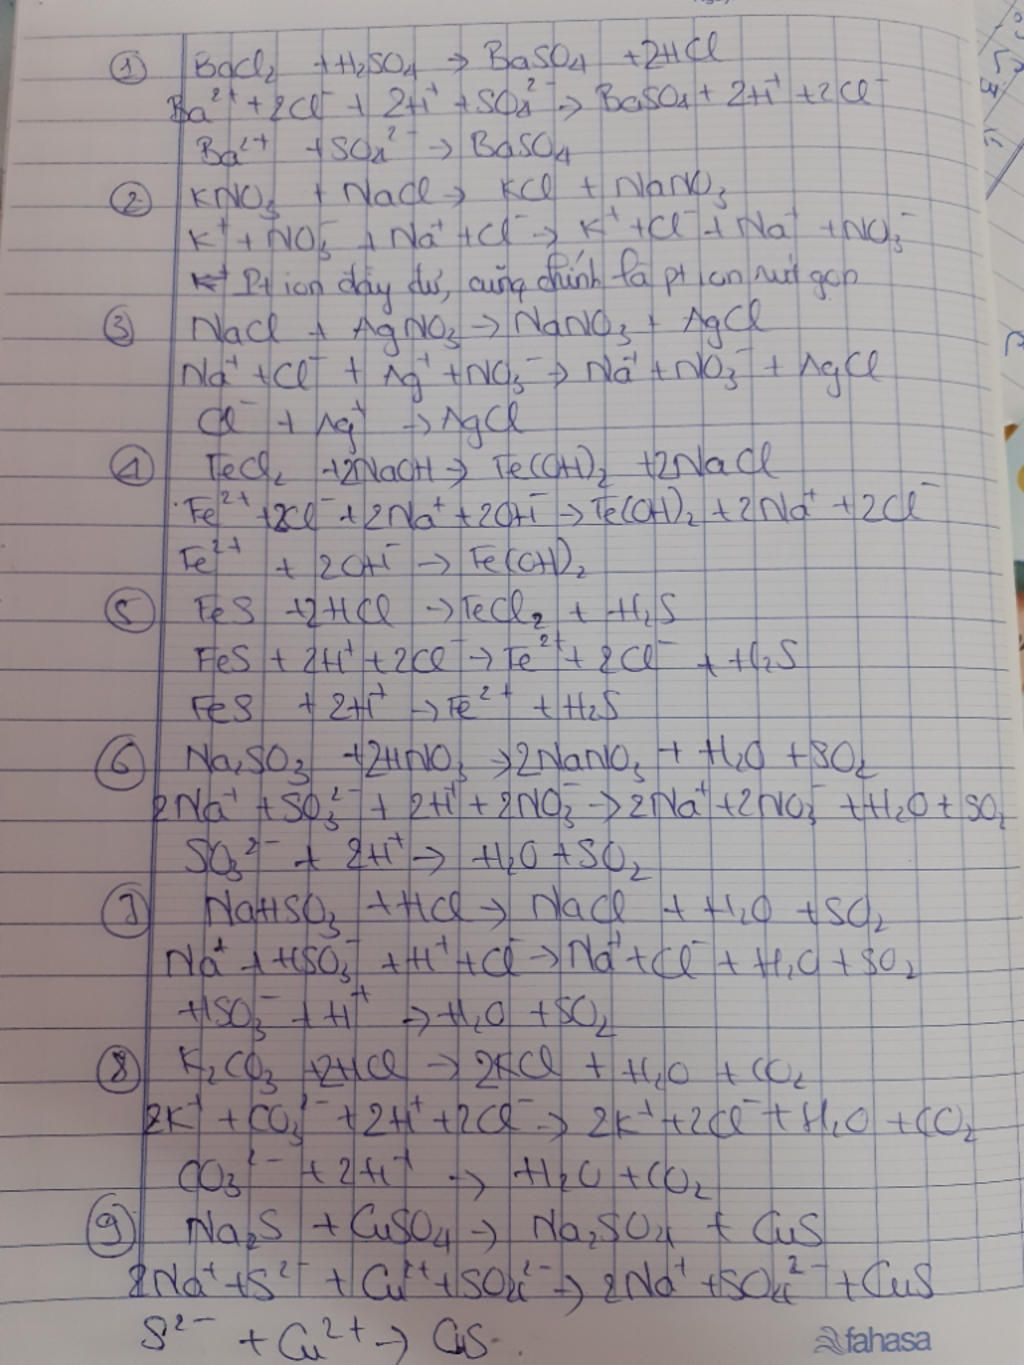 ① BaCl₂ + H₂SO₄ → BaSO₄ + 2HCl
Ba²⁺ + 2Cl⁻ + 2H⁺ + SO₄²⁻ → BaSO₄ + 2H⁺ + 2Cl⁻
Ba²⁺ + SO₄²⁻ → BaSO₄
② KNO₃ + NaCl → KCl + NaNO₃
K⁺ + NO₃⁻ + Na⁺ + Cl⁻ → K⁺ + Cl⁻ + Na⁺ + NO₃⁻
Pt ion đầy đủ, cũng chính là pt ion rút gọn
③ NaCl + AgNO₃ → NaNO₃ + AgCl
Na⁺ + Cl⁻ + Ag⁺ + NO₃⁻ → Na⁺ + NO₃⁻ + AgCl
Cl⁻ + Ag⁺ → AgCl
④ FeCl₂ + 2NaOH → Fe(OH)₂ + 2NaCl
Fe²⁺ + 2Cl⁻ + 2Na⁺ + 2OH⁻ → Fe(OH)₂ + 2Na⁺ + 2Cl⁻
Fe²⁺ + 2OH⁻ → Fe(OH)₂
⑤ FeS + 2HCl → FeCl₂ + H₂S
FeS + 2H⁺ + 2Cl⁻ → Fe²⁺ + 2Cl⁻ + H₂S
FeS + 2H⁺ → Fe²⁺ + H₂S
⑥ Na₂SO₃ + 2HNO₃ → 2NaNO₃ + H₂O + SO₂
2Na⁺ + SO₃²⁻ + 2H⁺ + 2NO₃⁻ → 2Na⁺ + 2NO₃⁻ + H₂O + SO₂
SO₃²⁻ + 2H⁺ → H₂O + SO₂
⑦ NaHSO₃ + HCl → NaCl + H₂O + SO₂
Na⁺ + HSO₃⁻ + H⁺ + Cl⁻ → Na⁺ + Cl⁻ + H₂O + SO₂
HSO₃⁻ + H⁺ → H₂O + SO₂
⑧ K₂CO₃ + 2HCl → 2KCl + H₂O + CO₂
2K⁺ + CO₃²⁻ + 2H⁺ + 2Cl⁻ → 2K⁺ + 2Cl⁻ + H₂O + CO₂
CO₃²⁻ + 2H⁺ → H₂O + CO₂
⑨ Na₂S + CuSO₄ → Na₂SO₄ + CuS
2Na⁺ + S²⁻ + Cu²⁺ + SO₄²⁻ → 2Na⁺ + SO₄²⁻ + CuS
S²⁻ + Cu²⁺ → CuS.
fahasa